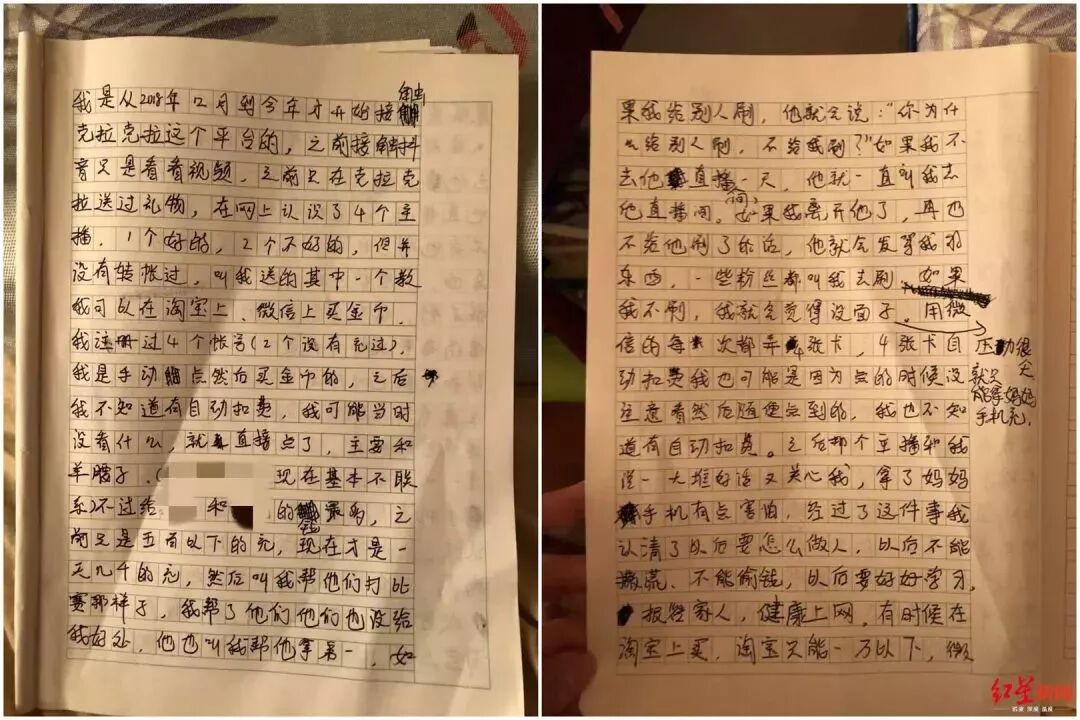 我是从2018年12月到今年才开始接触
克拉克拉这个平台的，之前接触抖
音只是看看视频，之前只在克拉克
拉送过礼物，在网上认识了4个主
播，1个好的，2个不好的，但并
没有转帐过，叫我送的其中一个教
我可以在淘宝上、微信上买金币，
我注册过4个帐号(2个没有充过)，
我是手动点然后买金币的，之后
我不知道有自动扣费，我可能当时
没看什么，就直播点了，主要和
羊腰子.(现在基本不联
系)不过给和的钱最多，之
前只是五百以下的充，现在才是一
天几千的充，然后叫我帮他们打比
赛那样子，我帮了他们他们也没给
我好处，他也叫我帮他拿第一，如
果我给别人刷，他就会说："你为什
么给别人刷，不给我刷？"如果我不
去他直播间一天，他就一直叫我去
他直播间，如果我离开他了，再也
不给他刷了的话，他就会发
东西，一些粉丝都叫我去刷，如果
我不刷，我就会觉得没面子。用微
压力很大
就只能拿妈妈手机充，
信的每次都弄4张卡，4张卡自
动扣费我也可能是因为点的时候没
注意看然后随便点到的，我也不知
道有自动扣费。之后那个主播和我
说一大堆好话又关心我，拿了妈妈
手机有点害怕，经过了这件事我
认清了以后要怎么做人，以后不能
撒谎、不能偷钱，以后要好好学习，
报答家人，健康上网。有时候在
淘宝上买，淘宝只能一万以下，微
红星新闻